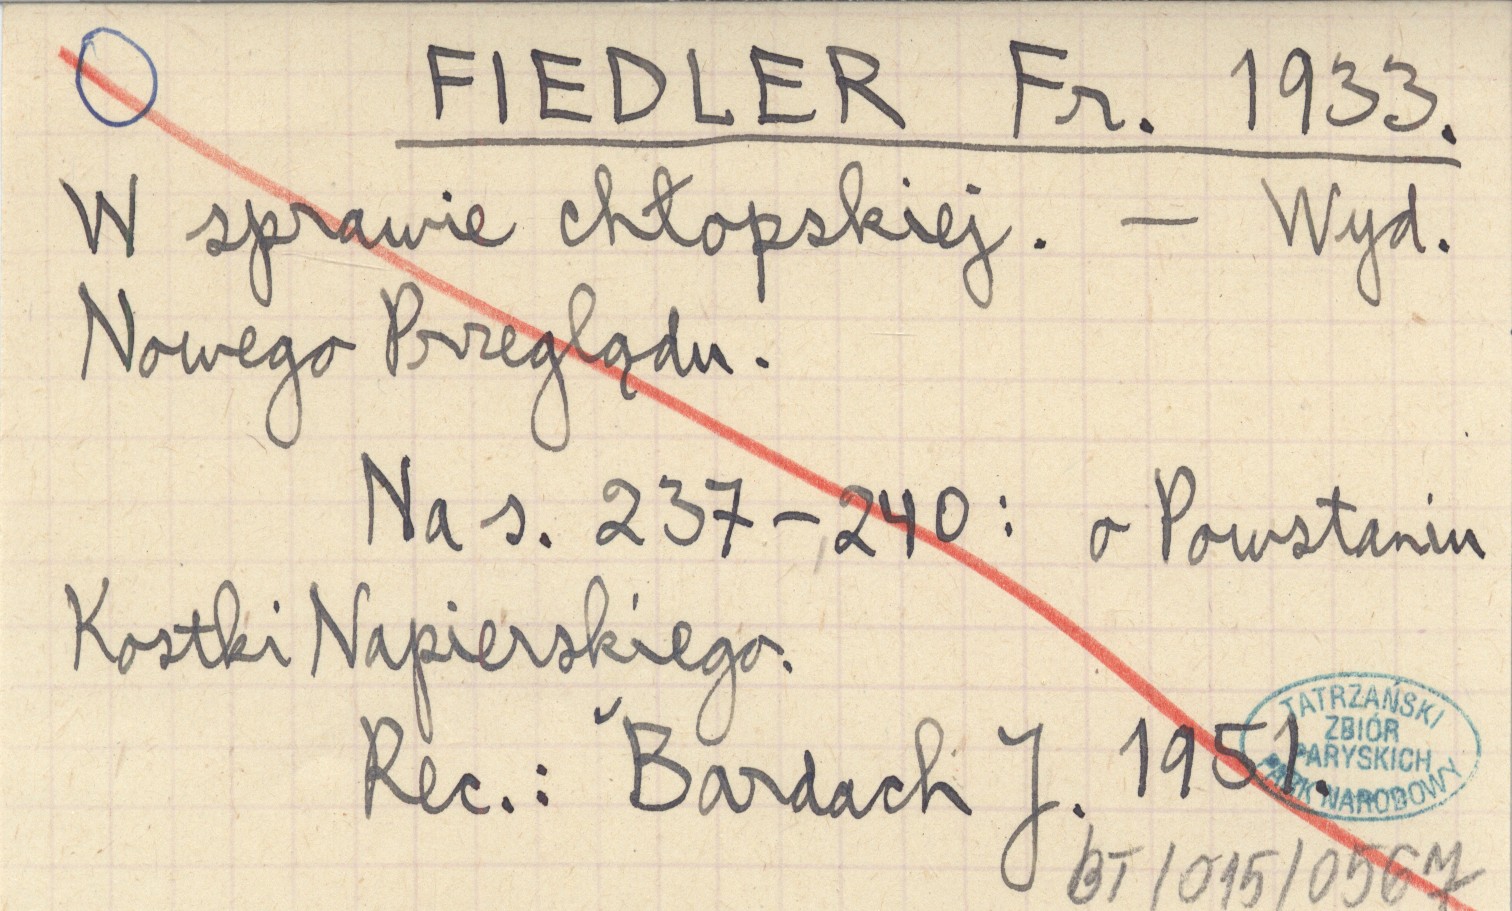 FIEDLER Fr. 1933.
W sprawie chłopskiej. – Wyd.
Nowego Przeglądu.
Na s. 237–240: o Powstaniu
Kostki Napierskiego.
Rec.: Bardach J. 1951.
TATRZAŃSKI
ZBIÓR
PARYSKICH
PARK NARODOWY
BT/015/0567